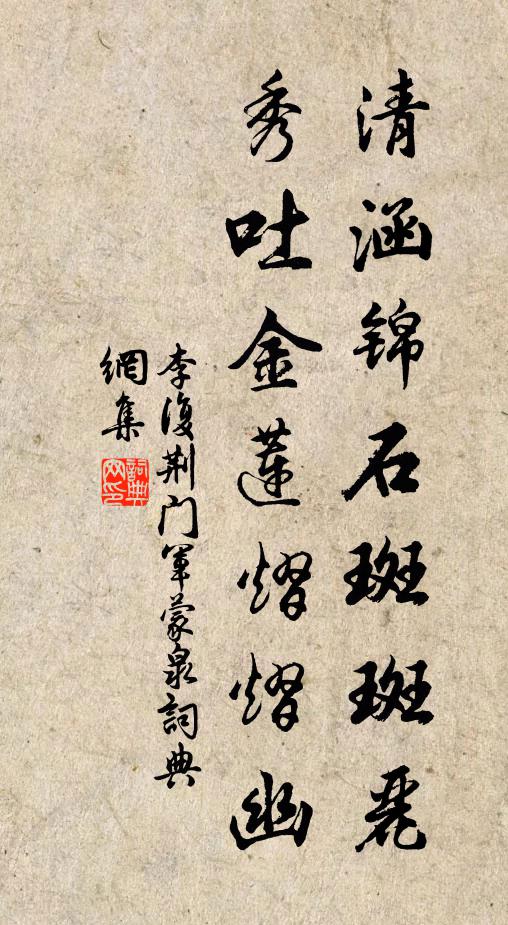 清涵锦石斑斑丽
秀吐金莲熠熠幽
李復荆门军蒙泉詞典
網集
詞典
网印